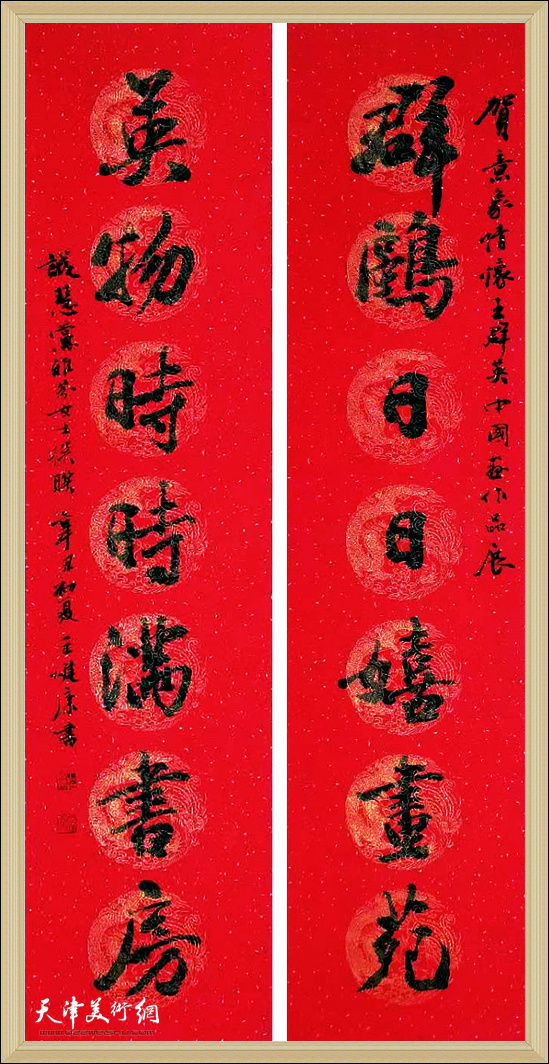 賀意象情懷王群英中國畫作品展
群鷗日日嬉畫苑
英物時時滿書房
誠慧齋雅芬女士撰聯 辛丑初夏 王健康書
天津美術網